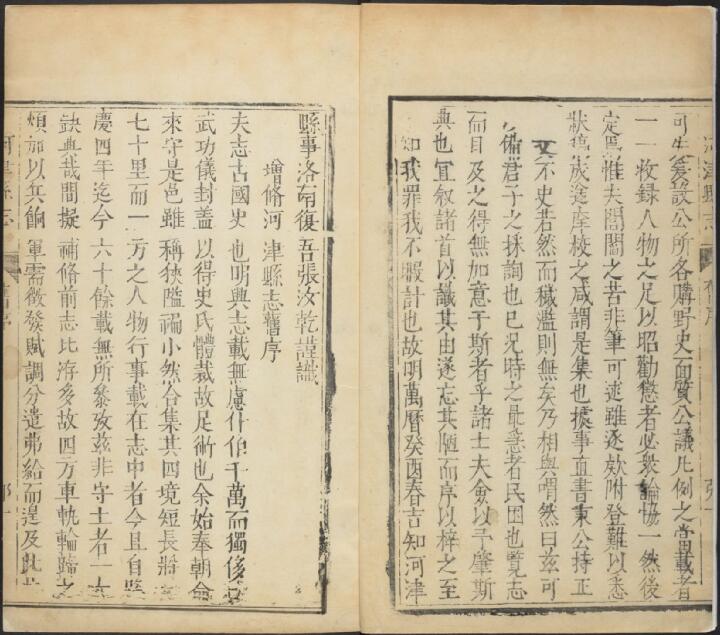 可先爰設公所各購野史面質公議凡例之當載者
一一收錄人物之足以昭勸懲者必衆論協一然後
定焉惟夫閭閻之苦非筆可述雖逐欵附登難以悉
狀稿成遂庠校之咸謂是集也據事直書東公持正
文不史若然而穢濫則無矣乃相與喟然曰兹可
備君子之採詢也已况時之最急者民困也覽志
而目及之得無加意于斯者乎諸士夫僉以予肇斯
典也宜叙諸首以識其由遂忘其陋而序以梓之至
知我罪我不暇計也故明萬曆癸酉春吉知河津
縣事洛南復吾張汝乾謹識
增修河津縣志舊序
夫志古國史也明興志載無慮什伯千萬而獨侈
武功儀封蓋以得史氏體裁故足術也余始奉朝命
來守是邑雖稱狹隘褊小然合集其四境短長將
七十里而一方之人物行事載在志中者今且自
慶四年迄今六十餘載無所叅攷兹非守土者一大
缺典哉間擬補修前志比洊多故四方車軌輪蹄之
煩加以兵餉軍需徵發賦調分遣弗給而遑及此
河津縣志
舊序